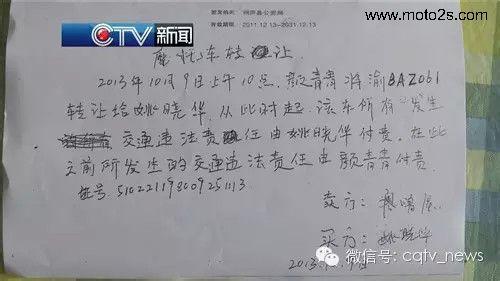 www.moto2s.com
有效期限 2011.12.13-2031.12.13
CTV 新闻
摩托车转让
2013年10月9日上午10点,颜青青将渝BAZ061
转让给姚晓华,从此时起,该车所有发生
交通违法责任由姚晓华付责。在此
之前所发生的交通违法责任由颜青青付责
证号:510221198009251113
卖方:
买方:姚晓华
2013.
微信号:cqtv_news